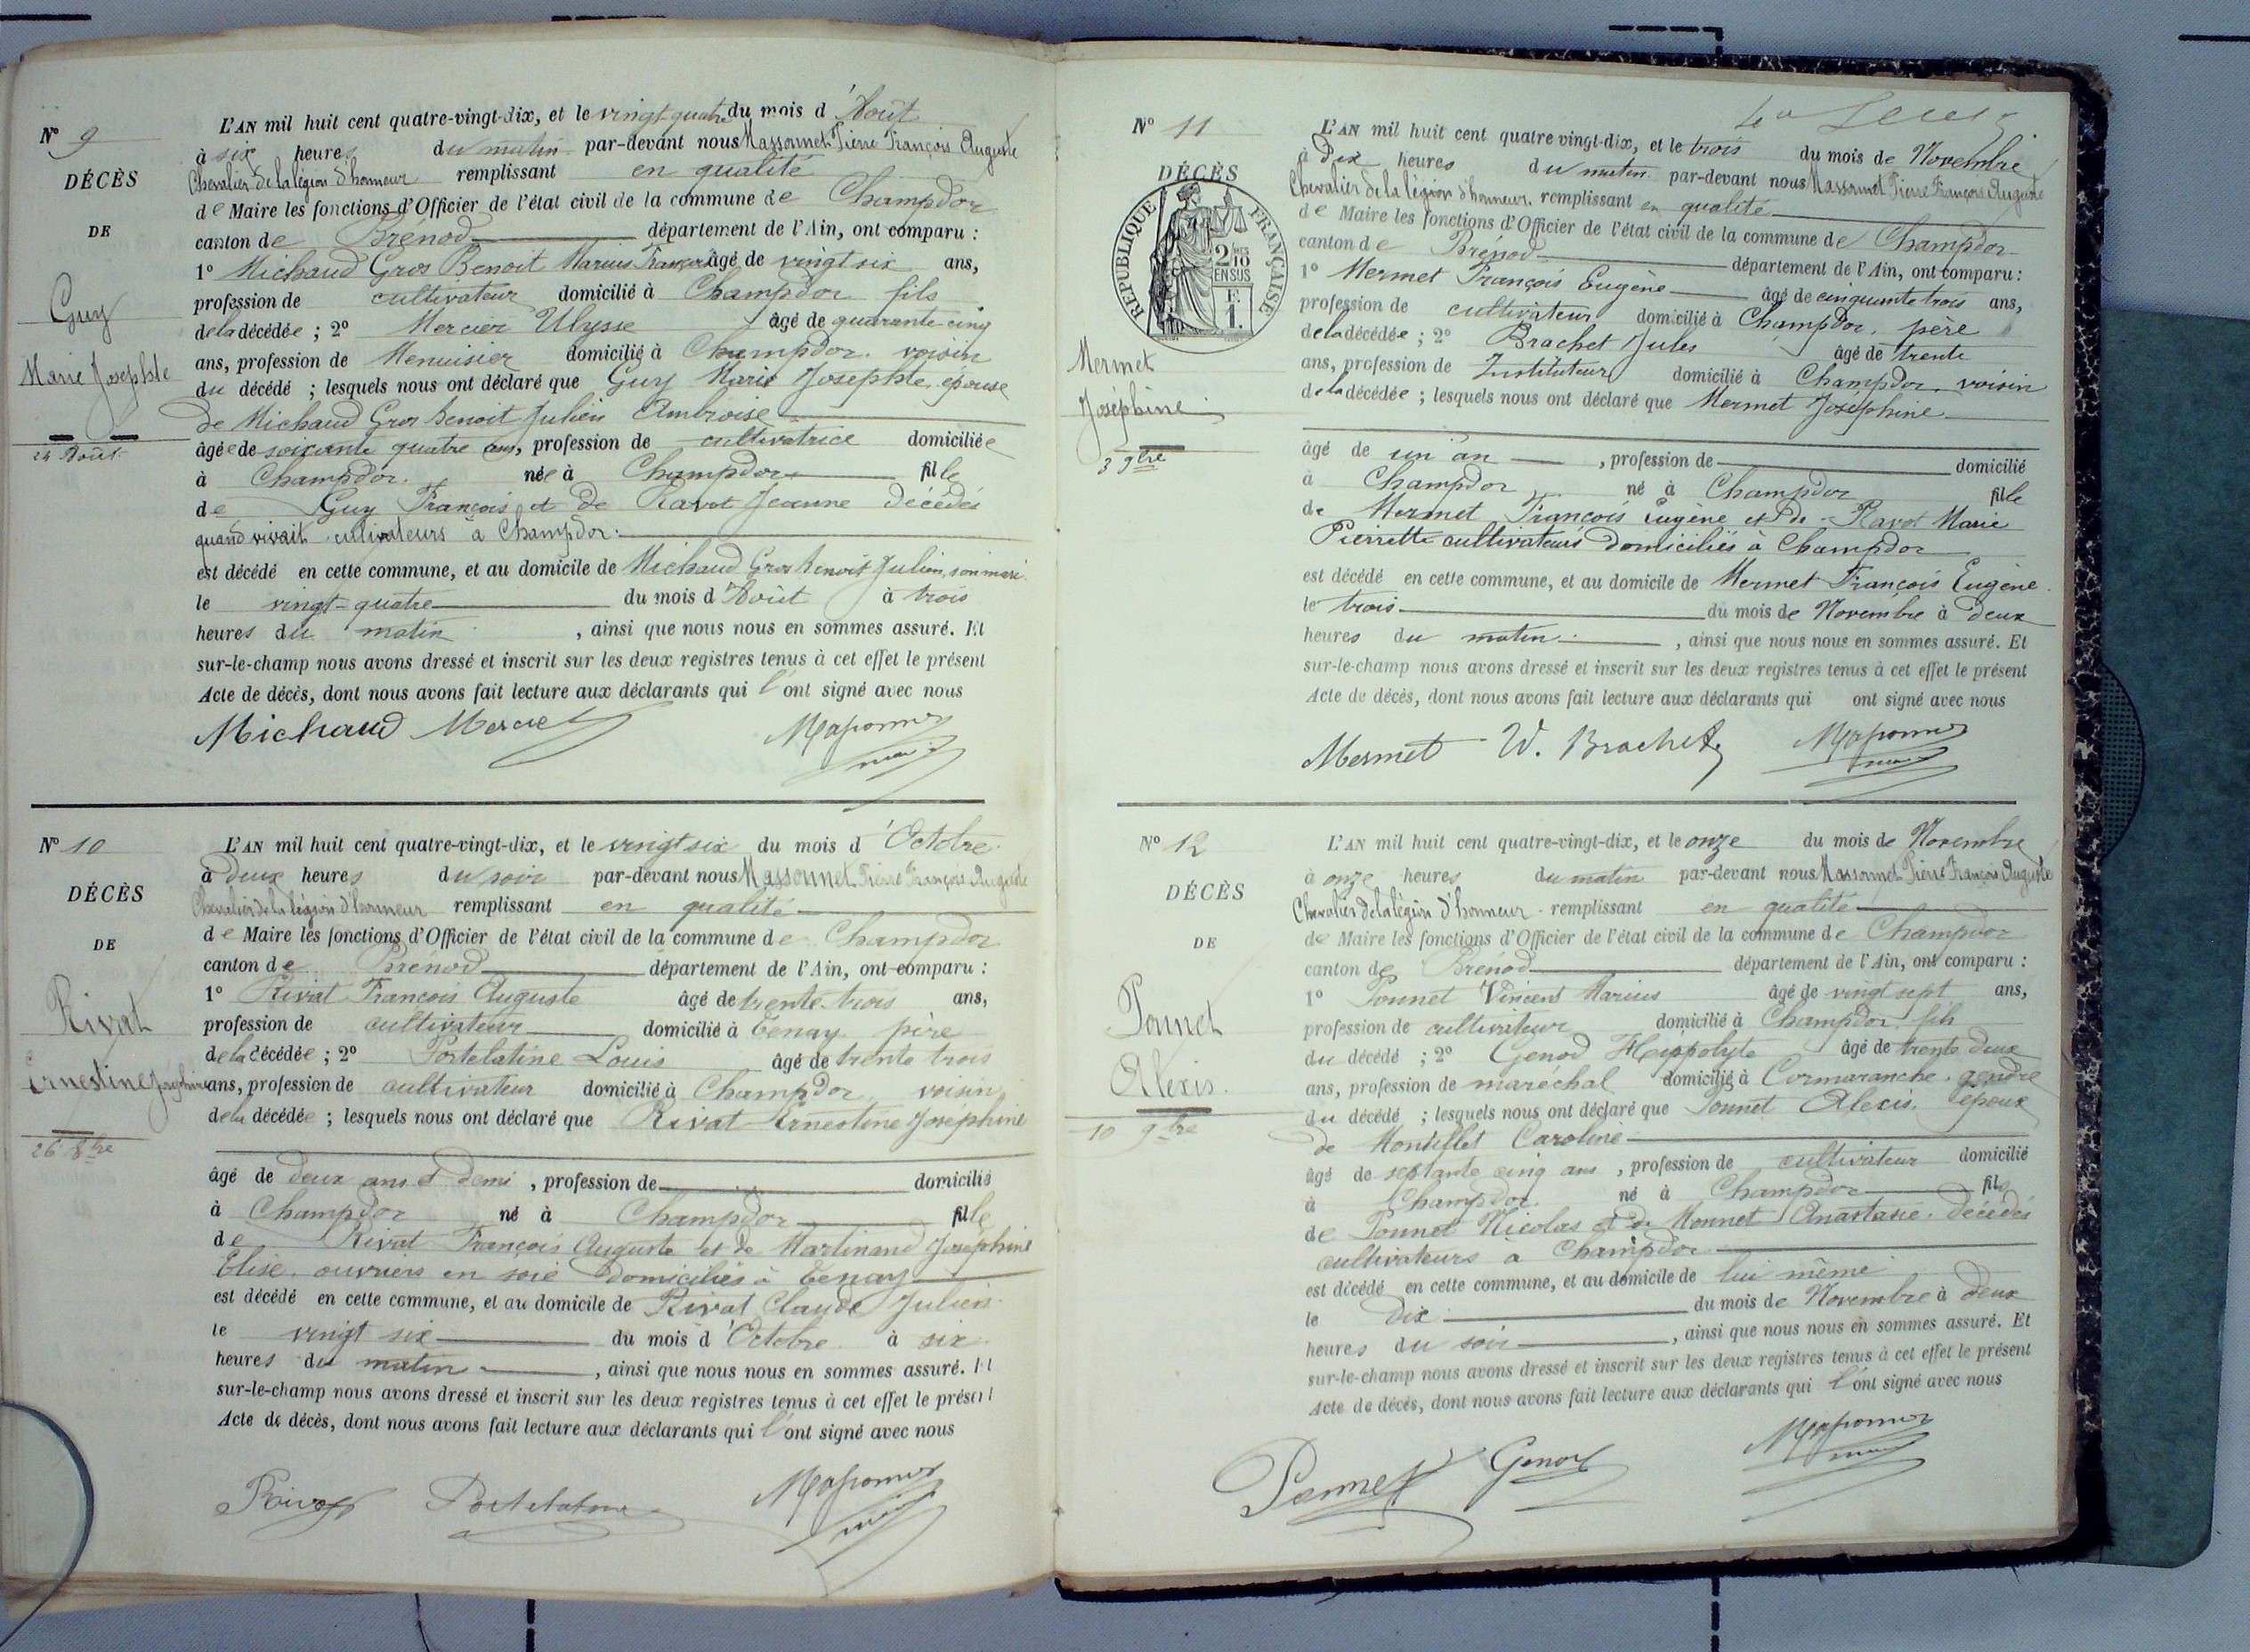 N° 9
DÉCÈS
DE
Guy
Marie Josephte
24 Août
L'AN mil huit cent quatre-vingt-dix, et le vingt quatre du mois d'Août
à six heures du matin par-devant nous Massonnet Pierre François Auguste
Chevalier de la légion d'honneur remplissant en qualité
de Maire les fonctions d'Officier de l'état civil de la commune de Champdor
canton de Brénod département de l'Ain, ont comparu :
1° Michaud Gros Benoit Marius François âgé de vingt six ans,
profession de cultivateur domicilié à Champdor fils
de la décédée ; 2° Mercier Ulysse âgé de quarante cinq
ans, profession de Menuisier domicilié à Champdor. voisin
du décédé ; lesquels nous ont déclaré que Guy Marie Josephte, épouse
de Michaud Gros Benoit Julien Ambroise
âgée de soixante quatre ans, profession de cultivatrice domiciliée
à Champdor. née à Champdor fille
de Guy François et de Ravot Jeanne décédés
quand vivait cultivateurs à Champdor.
est décédé en cette commune, et au domicile de Michaud Gros Benoit Julien, son mari
le vingt-quatre du mois d'Août à trois
heures du matin , ainsi que nous nous en sommes assuré. Et
sur-le-champ nous avons dressé et inscrit sur les deux registres tenus à cet effet le présent
Acte de décès, dont nous avons fait lecture aux déclarants qui l'ont signé avec nous
Michaud Mercier Massonnet
N° 10
DÉCÈS
DE
Rivat
Ernestine Josephine
26 8bre
L'AN mil huit cent quatre-vingt-dix, et le vingt six du mois d'Octobre
à deux heures du soir par-devant nous Massonnet Pierre François Auguste
Chevalier de la légion d'honneur remplissant en qualité
de Maire les fonctions d'Officier de l'état civil de la commune de Champdor
canton de Brénod département de l'Ain, ont comparu :
1° Rivat François Auguste âgé de trente trois ans,
profession de cultivateur domicilié à Tenay père
de la décédée ; 2° Portelatine Louis âgé de trente trois
ans, profession de cultivateur domicilié à Champdor voisin
de la décédée ; lesquels nous ont déclaré que Rivat Ernestine Joséphine
âgé de deux ans et demi , profession de domicilié
à Champdor né à Champdor fille
de Rivat François Auguste et de Martinand Joséphine
Elise. ouvriers en soie domiciliés à Tenay
est décédé en cette commune, et au domicile de Rivat Claude Julien
le vingt six du mois d'Octobre à six
heures du matin , ainsi que nous nous en sommes assuré. Et
sur-le-champ nous avons dressé et inscrit sur les deux registres tenus à cet effet le présent
Acte de décès, dont nous avons fait lecture aux déclarants qui l'ont signé avec nous
Rivat Portelatine Massonnet
N° 11
DÉCÈS
RÉPUBLIQUE FRANÇAISE
2/10 EN SUS
F. 1.
Mermet
Joséphine
3 9bre
L'AN mil huit cent quatre vingt-dix, et le trois du mois de Novembre
à Dix heures du matin par-devant nous Massonnet Pierre François Auguste
Chevalier de la légion d'honneur. remplissant en qualité
de Maire les fonctions d'Officier de l'état civil de la commune de Champdor
canton de Brénod département de l'Ain, ont comparu :
1° Mermet François Eugène âgé de cinquante trois ans,
profession de cultivateur domicilié à Champdor. père
de la décédée ; 2° Brachet Jules âgé de trente
ans, profession de Instituteur domicilié à Champdor. voisin
de la décédée ; lesquels nous ont déclaré que Mermet Joséphine
âgé de un an , profession de domicilié
à Champdor né à Champdor fille
de Mermet François Eugène et de Ravot Marie
Pierrette cultivateurs domiciliés à Champdor
est décédé en cette commune, et au domicile de Mermet François Eugène
le trois du mois de Novembre à deux
heures du matin , ainsi que nous nous en sommes assuré. Et
sur-le-champ nous avons dressé et inscrit sur les deux registres tenus à cet effet le présent
Acte de décès, dont nous avons fait lecture aux déclarants qui ont signé avec nous
Mermet W. Brachet Massonnet
N° 12
DÉCÈS
DE
Ponnet
Alexis.
10 9bre
L'AN mil huit cent quatre-vingt-dix, et le onze du mois de Novembre
à onze heures du matin par-devant nous Massonnet Pierre François Auguste
Chevalier de la légion d'honneur remplissant en qualité
de Maire les fonctions d'Officier de l'état civil de la commune de Champdor
canton de Brénod département de l'Ain, ont comparu :
1° Ponnet Vincent Marius âgé de vingt sept ans,
profession de cultivateur domicilié à Champdor fils
du décédé ; 2° Genod Hippolyte âgé de trente deux
ans, profession de maréchal domicilié à Cormaranche. gendre
du décédé ; lesquels nous ont déclaré que Ponnet Alexis. époux
de Montillet Caroline
âgé de septante cinq ans , profession de cultivateur domicilié
à Champdor né à Champdor fils
de Ponnet Nicolas et de Monnet Anastasie. décédés
cultivateurs à Champdor
est décédé en cette commune, et au domicile de lui même
le Dix du mois de Novembre à deux
heures du soir , ainsi que nous nous en sommes assuré. Et
sur-le-champ nous avons dressé et inscrit sur les deux registres tenus à cet effet le présent
Acte de décès, dont nous avons fait lecture aux déclarants qui l'ont signé avec nous
Ponnet Genod Massonnet